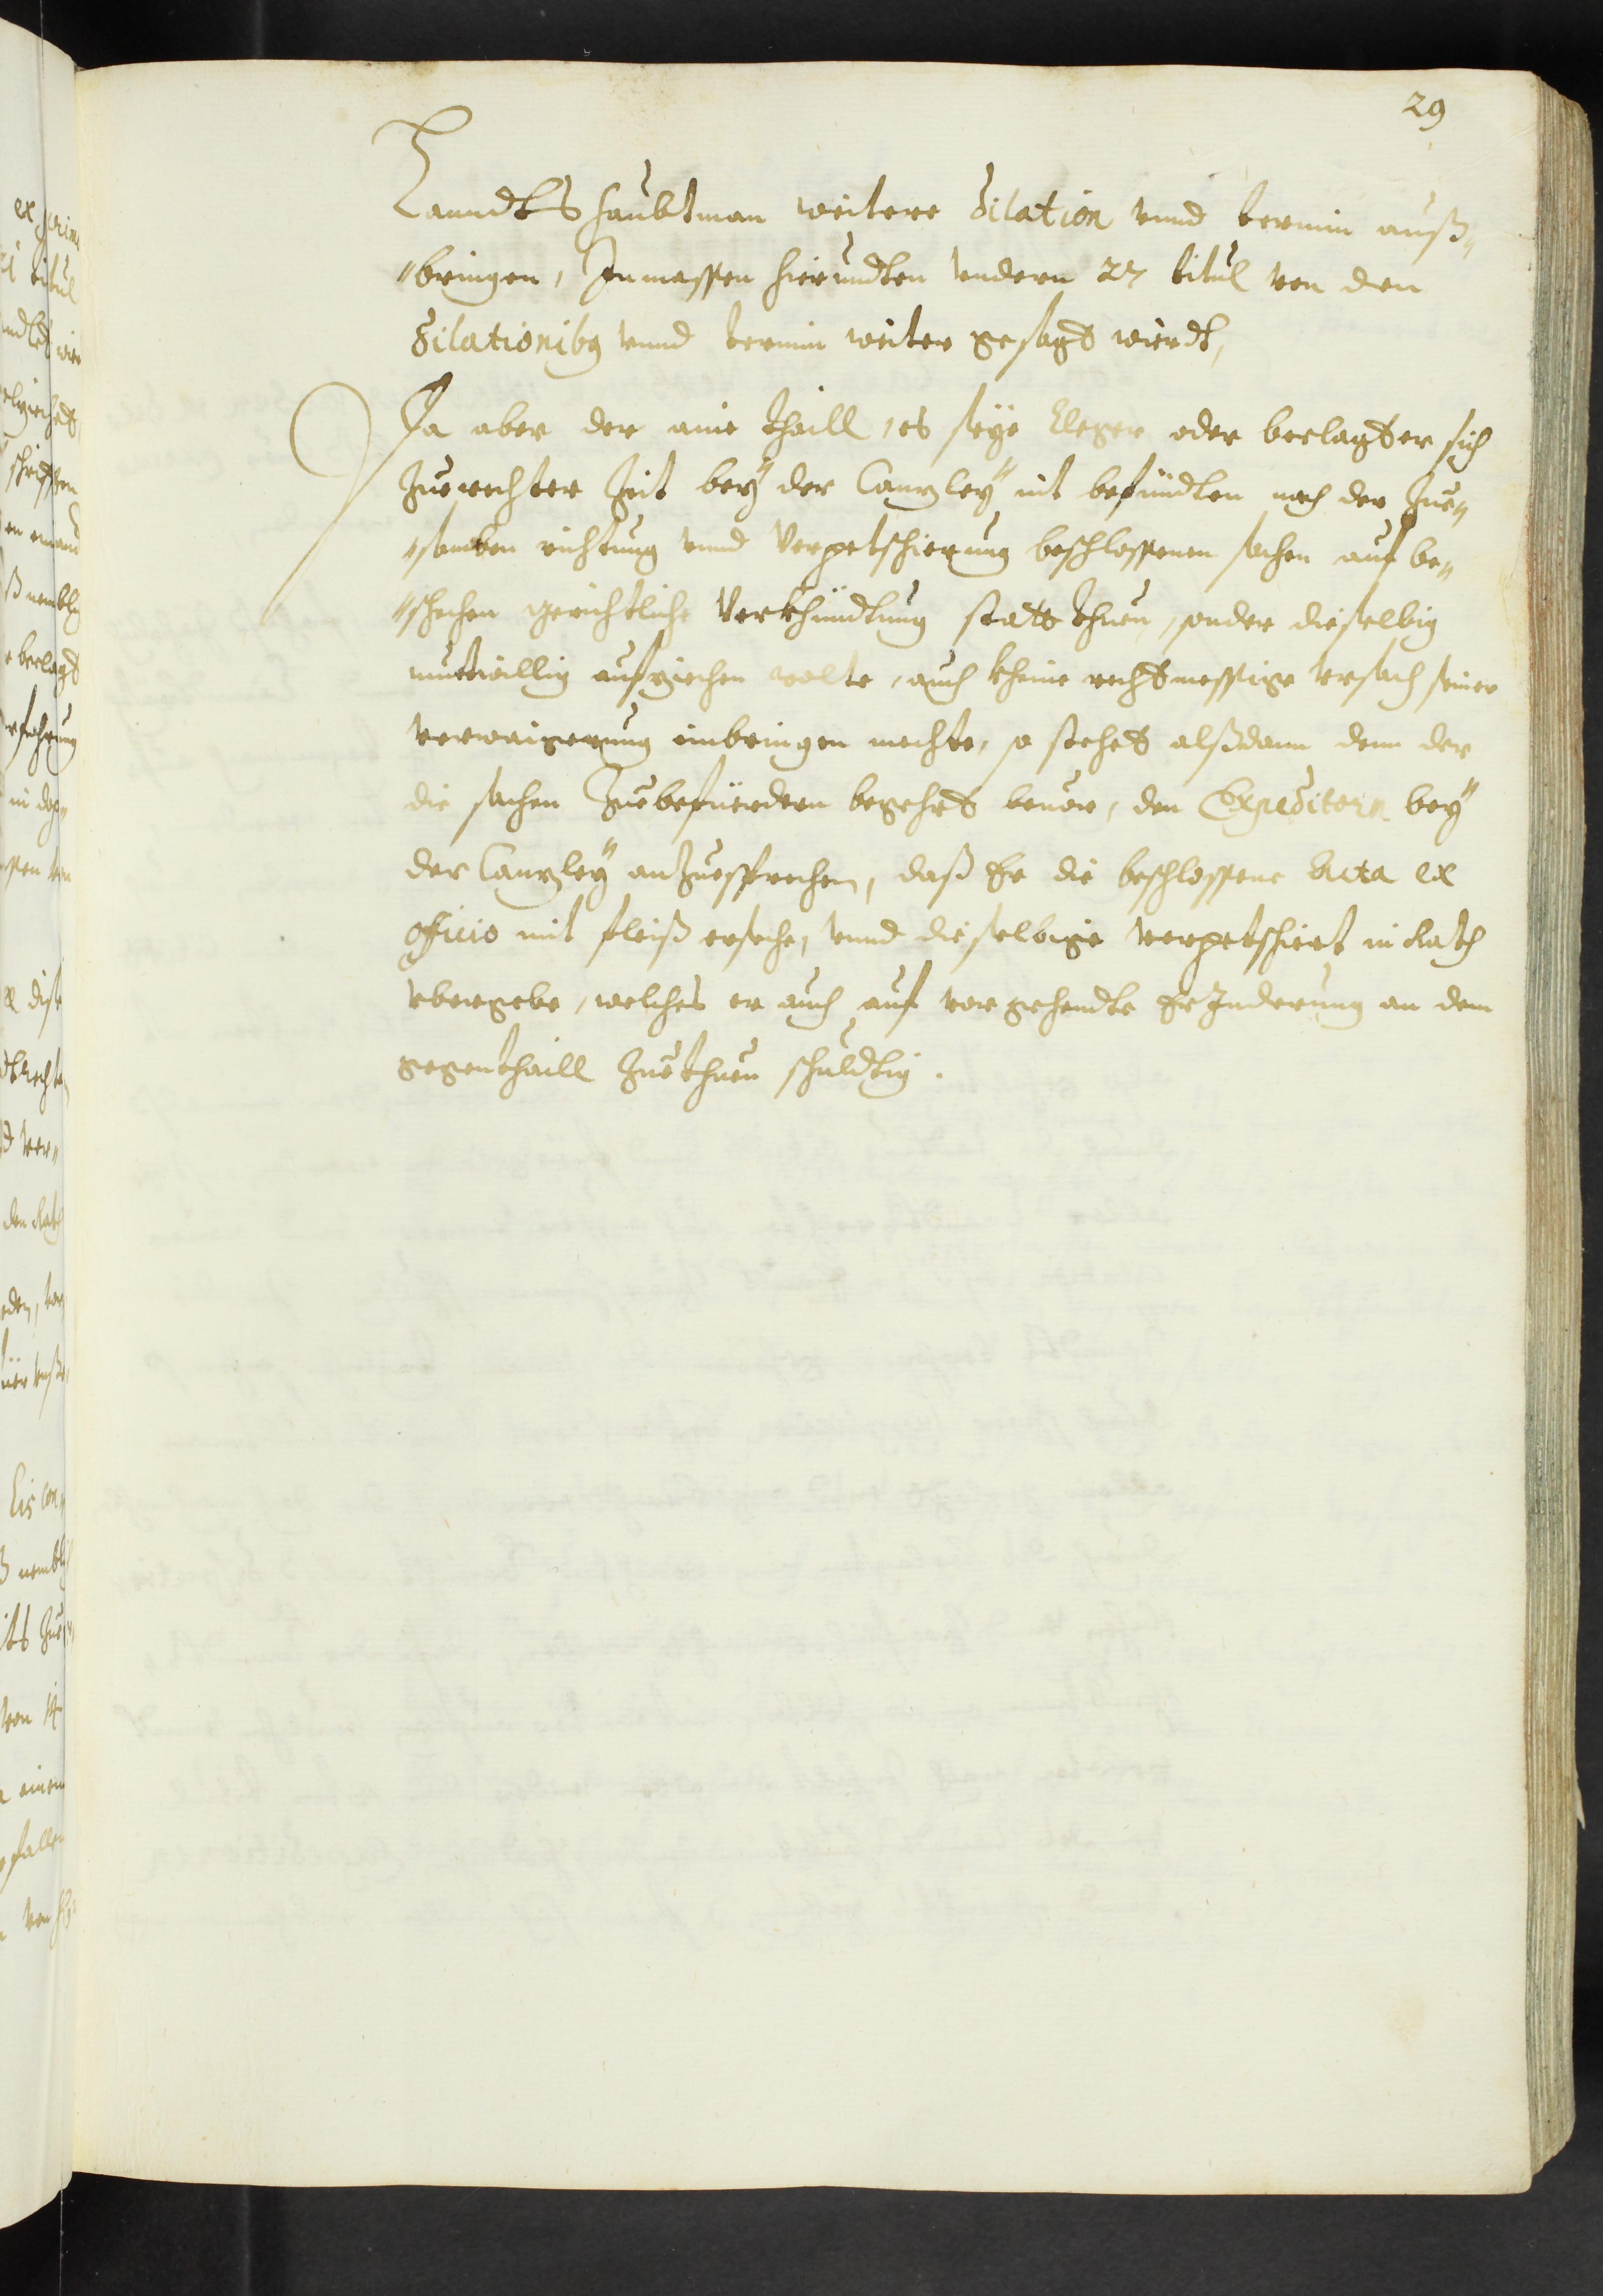 29
Lanndtshaubtman weitere dilation vnnd termin auß„
„bringen, Inmassen hierundten vndern 27 titul von den
dilationibus vnnd termin weiter gesagt wierdt,
Da aber der aine thaill, es seÿe Cleger oder beclagter sich
Zue rechter Zeit beÿ der Canzleÿ nit befündten nach der Zue„
„samben richtung vnnd Verpetschierung beschlossenen sachen auf be„
„schehen gerichtliche Verkhündtung statt thuen, sonder dieselbig
muetwillig aufziechen wolte, auch kheine rechtmessige vrsach seiner
verwaigerung einbringen mechte, so stehet alßdann dem der
die sachen Zuebefürdern begehrt beuor, den Expeditorn beÿ
der Canzleÿ anZuesprechen, daß Er die beschlossene Acta ex
officio mit fleiß ersehe, vnnd dieselbige verpetschiert in Rath
vbergebe, welches er auch auf vorgehendte ErInderung an dem
gegenthaill Zuethuen schuldtig.